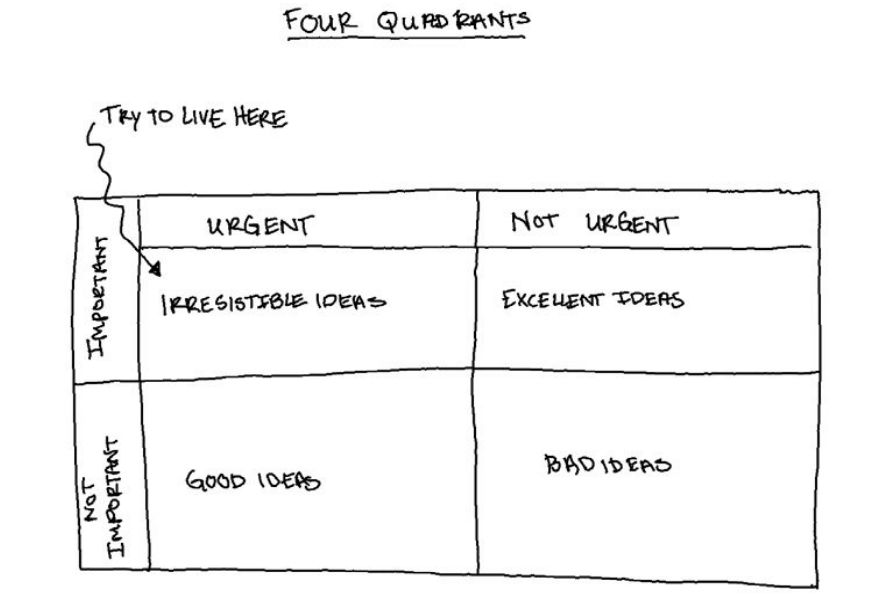 FOUR QUADRANTS
TRY TO LIVE HERE
URGENT
NOT URGENT
IMPORTANT
IRRESISTIBLE IDEAS
EXCELLENT IDEAS
NOT
IMPORTANT
GOOD IDEAS
BAD IDEAS